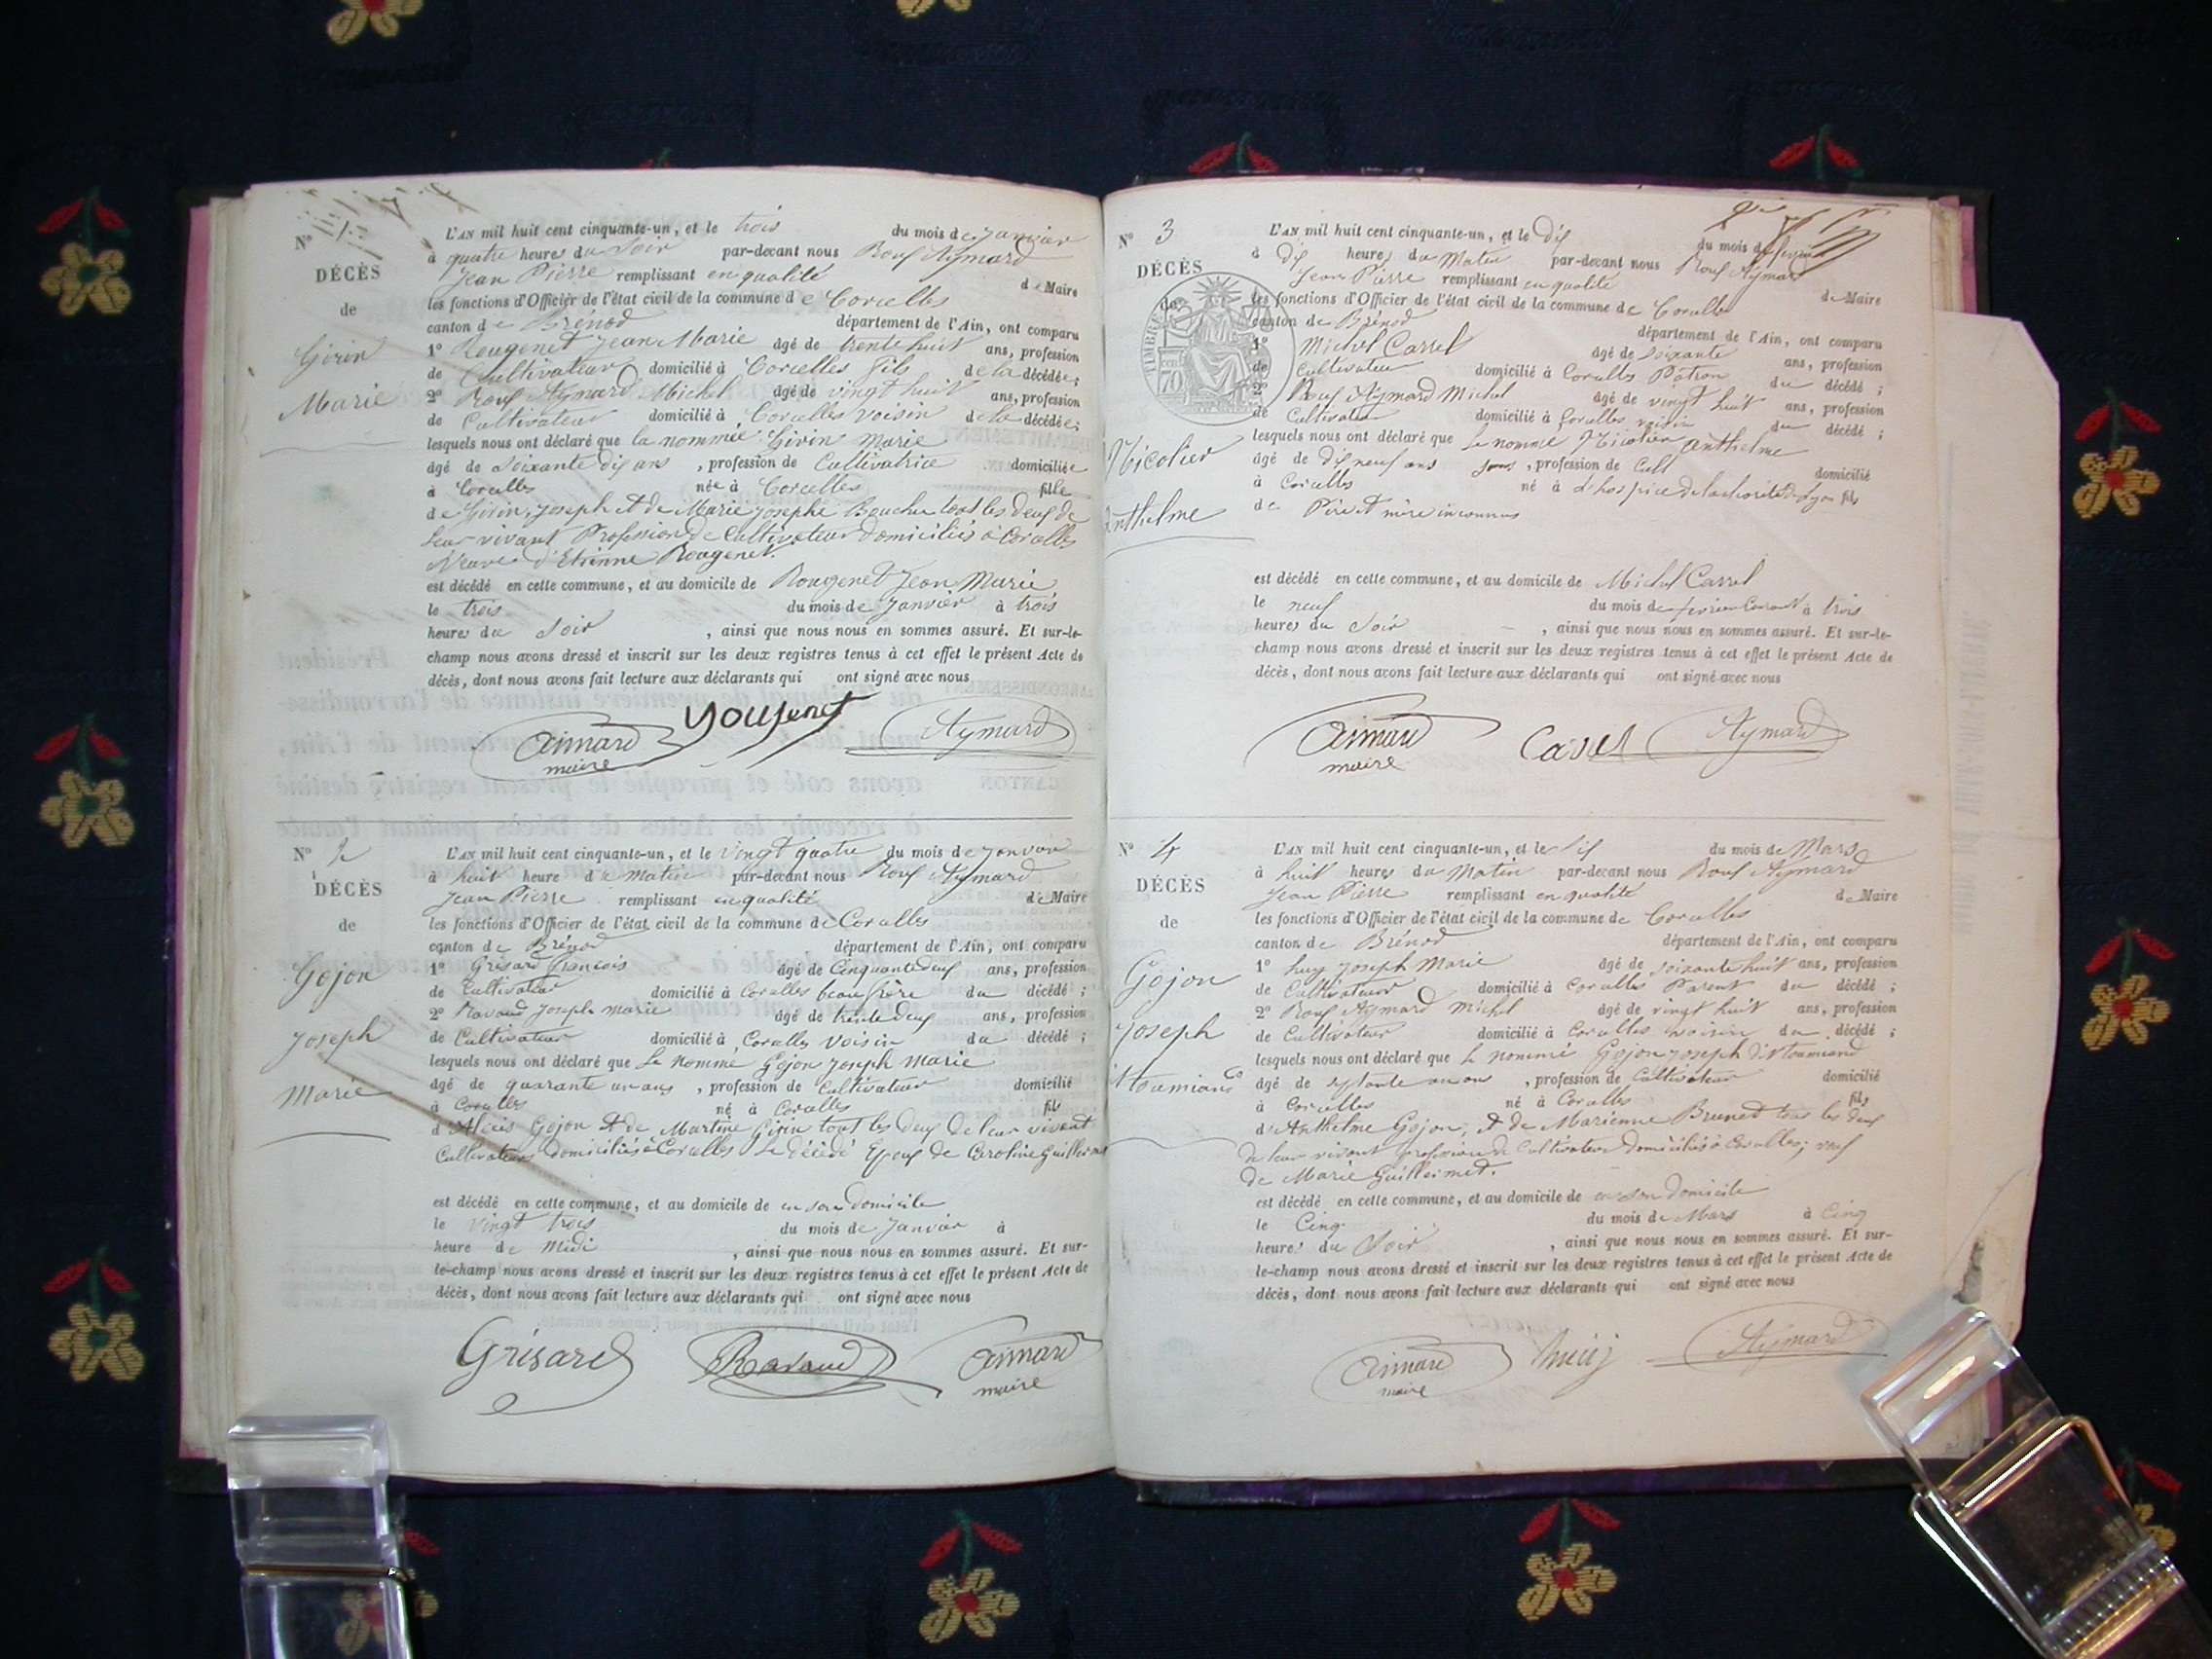 N° 1
DÉCÈS
de
Girin
Marie
L'AN mil huit cent cinquante-un, et le trois du mois de Janvier
à quatre heures du Soir par-devant nous Roux Aymard
Jean Pierre remplissant en qualité de Maire
les fonctions d'Officier de l'état civil de la commune de Corcelles
canton de Brénod département de l'Ain, ont comparu
1° Rougenet Jean Marie âgé de trente huit ans, profession
de Cultivateur domicilié à Corcelles fils de la décédée;
2° Roux Aymard Michel âgé de vingt huit ans, profession
de Cultivateur domicilié à Corcelles voisin de la décédée;
lesquels nous ont déclaré que la nommée Girin Marie
âgé de soixante dix ans, profession de Cultivatrice domiciliée
à Corcelles née à Corcelles fille
de Girin Joseph et de Marie Josephe tout les deux de
leur vivant Profession de Cultivateur domiciliés à Corcelles
Veuve d'Etienne Rougenet.
est décédé en cette commune, et au domicile de Rougenet Jean Marie
le trois du mois de Janvier à trois
heures du Soir, ainsi que nous nous en sommes assuré. Et sur-le-
champ nous avons dressé et inscrit sur les deux registres tenus à cet effet le présent Acte de
décès, dont nous avons fait lecture aux déclarants qui ont signé avec nous
Aimard Rougenet Aymard
maire
N° 2
DÉCÈS
de
Gojon
Joseph
Marie
L'AN mil huit cent cinquante-un, et le vingt quatre du mois de Janvier
à huit heure du matin par-devant nous Roux Aymard
Jean Pierre remplissant en qualité de Maire
les fonctions d'Officier de l'état civil de la commune de Corcelles
canton de Brénod département de l'Ain, ont comparu
1° Grisard François âgé de Cinquante deux ans, profession
de Cultivateur domicilié à Corcelles beau frère du décédé;
2° Ravaud Joseph marie âgé de trente deux ans, profession
de Cultivateur domicilié à Corcelles voisin du décédé;
lesquels nous ont déclaré que le nommé Gojon Joseph Marie
âgé de quarante un ans, profession de Cultivateur domicilié
à Corcelles né à Corcelles fils
d'Alexis Gojon et de Martine Girin tout les deux de leur vivant
Cultivateurs domiciliés à Corcelles le décédé Epoux de Caroline Guillermet
est décédé en cette commune, et au domicile de en son domicile
le vingt trois du mois de Janvier à
heure de Midi, ainsi que nous nous en sommes assuré. Et sur-
le-champ nous avons dressé et inscrit sur les deux registres tenus à cet effet le présent Acte de
décès, dont nous avons fait lecture aux déclarants qui ont signé avec nous
Grisard Ravaud Aimard
maire
N° 3
DÉCÈS
de
TIMBRE
70
Nicolier
Anthelme
L'AN mil huit cent cinquante-un, et le dix du mois de février
à dix heures du Matin par-devant nous Roux Aymard
Jean Pierre remplissant en qualité de Maire
les fonctions d'Officier de l'état civil de la commune de Corcelles
canton de Brénod département de l'Ain, ont comparu
1° Michel Carrel âgé de soixante ans, profession
de Cultivateur domicilié à Corcelles Patron du décédé;
2° Roux Aymard Michel âgé de vingt huit ans, profession
de Cultivateur domicilié à Corcelles voisin du décédé;
lesquels nous ont déclaré que le nommé Nicolier Anthelme
âgé de dix neuf ans, profession de Cult domicilié
à Corcelles né à l'hospice de la charité de Lyon fils
de Père et mère inconnus
est décédé en cette commune, et au domicile de Michel Carrel
le neuf du mois de fevrier Courant à trois
heures du Soir, ainsi que nous nous en sommes assuré. Et sur-le-
champ nous avons dressé et inscrit sur les deux registres tenus à cet effet le présent Acte de
décès, dont nous avons fait lecture aux déclarants qui ont signé avec nous
Aimard Carrel Aymard
maire
N° 4
DÉCÈS
de
Gojon
Joseph
L'AN mil huit cent cinquante-un, et le six du mois de Mars
à huit heures du Matin par-devant nous Roux Aymard
Jean Pierre remplissant en qualité de Maire
les fonctions d'Officier de l'état civil de la commune de Corcelles
canton de Brénod département de l'Ain, ont comparu
1° huy Joseph Marie âgé de soixante huit ans, profession
de Cultivateur domicilié à Corcelles Parent du décédé;
2° Roux Aymard Michel âgé de vingt huit ans, profession
de Cultivateur domicilié à Corcelles voisin du décédé;
lesquels nous ont déclaré que le nommé Gojon Joseph
âgé de septante un ans, profession de Cultivateur domicilié
à Corcelles né à Corcelles fils
d'Anthelme Gojon, et de Marienne Brunet tous les deux
de leur vivant profession de Cultivateur domiciliés à Corcelles; veuf
de Marie Guillermet.
est décédé en cette commune, et au domicile de en son domicile
le Cinq du mois de Mars à Cinq
heures du Soir, ainsi que nous nous en sommes assuré. Et sur-
le-champ nous avons dressé et inscrit sur les deux registres tenus à cet effet le présent Acte de
décès, dont nous avons fait lecture aux déclarants qui ont signé avec nous
Aimard huy Aymard
maire